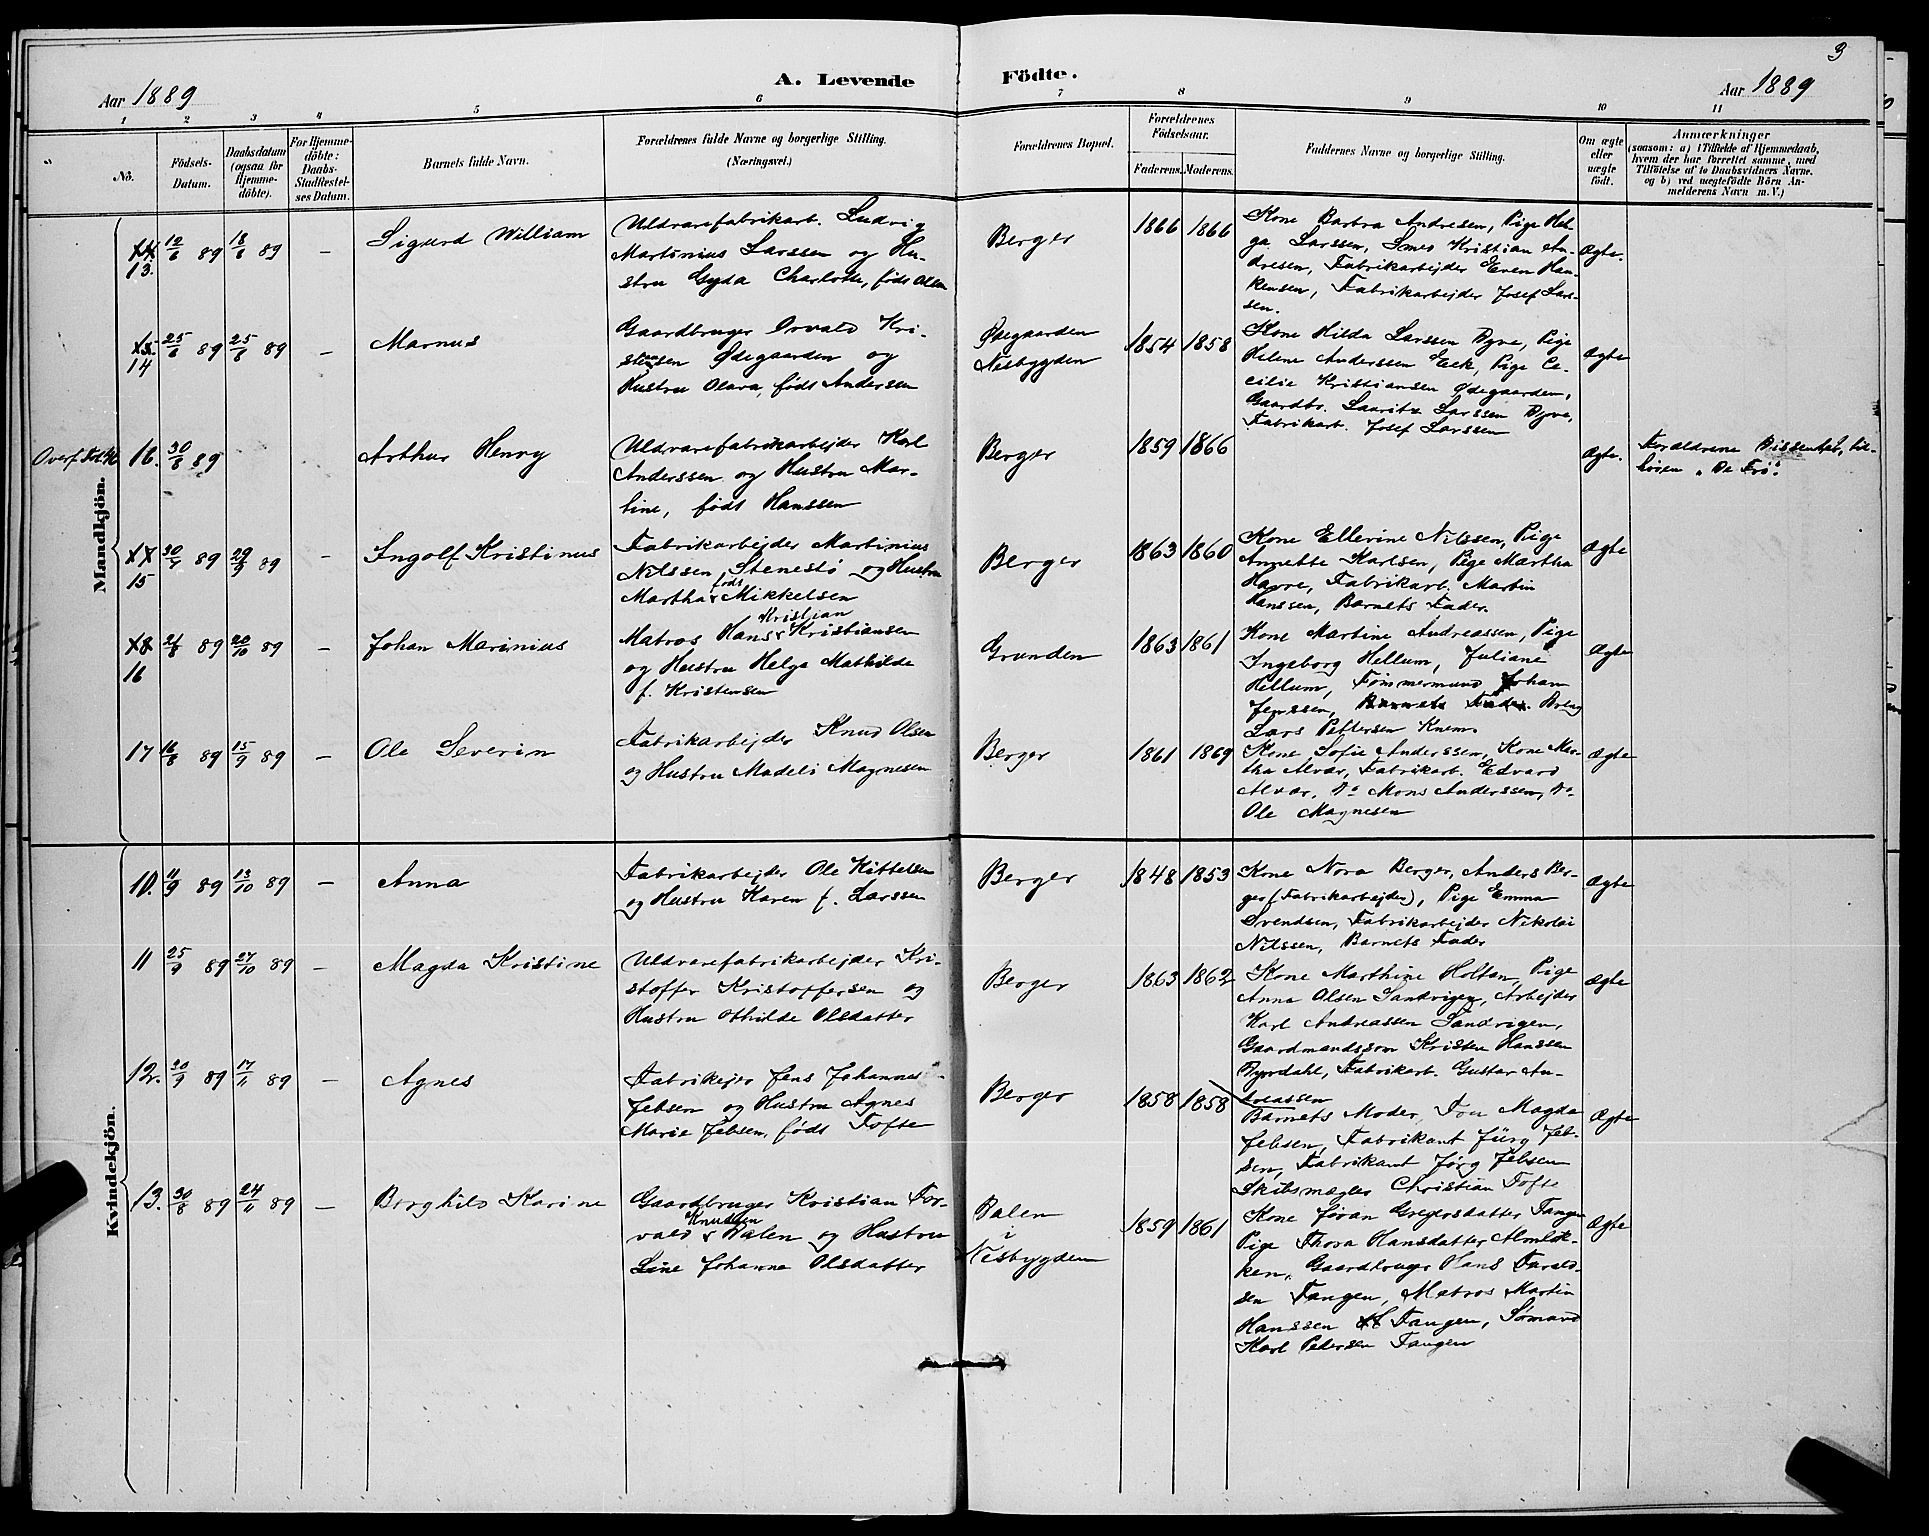 3
Aar 1889
A. Levende Födte.
Aar 1889
1 2 3 4 5 6 7 8 9 10 11
No.
Födsels-
Datum.
Daabsdatum
(ogsaa for
Hjemme-
döbte).
For Hjemme-
döbte:
Daabs-
Stadfæstel-
ses Datum.
Barnets fulde Navn.
Forældrenes fulde Navne og borgerlige Stilling.
(Næringsvei.)
Forældrenes Bopæl.
Forældrenes
Födselsaar.
Faderens. Moderens.
Faddernes Navne og borgerlige Stilling.
Om ægte
eller
uægte
födt.
Anmærkninger
(saasom: a) i Tilfælde af Hjemmedaab,
hvem der har forrettet samme, med
Tilföielse af to Daabsvidners Navne.
og b) ved uægtefödte Börn An-
melderens Navn m. V.)
Mandkjön.
13. 12/6 89 18/8 89 –
Sigurd William
Uldvarefabrikarb. Ludvig
Martinius Larssen og Hu-
stru Gyda Charlotte, født Olsen
Berger
1866 1866
Kone Barbra Andresen, Pige Hel-
ga Larssen, Smed Kristian An-
dresen, Fabrikarbejder Even Haa-
kensen, Fabrikarbejder Josef Lars-
sen.
Ægte.
14 25/6 89 25/8 89 –
Marnus
Gaardbruger Osvald Kri-
stensen Ødegaarden og
Hustru Olava, født Andersen
Ødegaarden
Nesbygden
1854 1858
Kone Hilda Larssen Dyve, Pige
Helene Anderssen Eek, Pige Ce-
cilie Kristiansen Ødegaarden,
Gaardbr. Lauritz Larssen Dyve,
Fabrikarb. Josef Larssen
Ægte
16. 30/8 89
Arthur Henry
Uldvarefabrikarbejder Karl
Anderssen og Hustru Mar-
tine, født Hanssen
Berger
1859 1866
Ægte.
Forældrene Dissentere, til-
hører "De Fri".
15 30/7 89 29/9 89 –
Ingolf Kristinus
Fabrikarbejder Martinius
Nilssen Stenestø og Hustru
Martha født Mikkelsen
Berger
1863 1860
Kone Ellerine Nilssen, Pige
Annette Karlsen, Pige Martha
Havre, Fabrikarb. Martin
Hanssen, Barnets Fader.
Ægte
16 21/8 89 20/10 89 –
Johan Marinius
Matros Hans Kristian Kristiansen
og Hustru Helga Mathilde
f. Kristensen
Grunden
1863 1861
Kone Martine Andreassen, Pige
Ingeborg Hellum, Juliane
Hellum, Tømmermand Johan
Jenssen, Barnets Fader. Berg
Lars Pettersen Knem.
Ægte
17 16/8 89 15/9 89 –
Ole Severin
Fabrikarbejder Knud Olsen
og Hustru Madeli Magnesen
Berger
1861 1869
Kone Sofie Anderssen, Kone Mar-
tha Alvær, Fabrikarb. Edvard
Alvær, Do Mons Anderssen, Do
Ole Magnesen
Ægte
Kvindekjön.
10. 11/9 89 13/10 89 –
Anna
Fabrikarbejder Ole Kittelsen
og Hustru Karen f. Larssen
Berger
1848 1853
Kone Nora Berger, Anders Ber-
ger (Fabrikarbejder), Pige Emma
Svendsen, Fabrikarbejder Nikolai
Nilssen, Barnets Fader
Ægte
11 25/9 89 27/10 89 –
Magda Kristine
Uldvarefabrikarbejder Kri-
stoffer Kristoffersen og
Hustru Othilde Olsdatter
Berger
1863 1862
Kone Marthine Holtan, Pige
Anna Olsen Sandvigen, Arbejder
Karl Andreassen Sandvigen,
Gaardmandssøn Kristen Hanssen
Dyrdahl, Fabrikarb. Gustav An-
dreassen
Ægte
12. 20/9 89 17/11 89 –
Agnes
Fabrikejer Jens Johannes
Jebsen og Hustru Agnes
Marie Jebsen, født Tofte
Berger
1858 1858
Barnets Moder, Fru Magda
Jebsen, Fabrikant Jürg Jeb-
sen, Fabrikant Jørg Jebsen
Skibsmægler Christian Tofte
Ægte
13. 30/8 89 24/11 89 –
Borghild Karine
Gaardbruger Kristian Tor-
vald Knudsen Balen og Hustru
Line Johanne Olsdatter
Balen
i
Nesbygden
1859 1861
Kone Jøran Gregersdatter Tangen
Pige Thora Hansdatter
Gaardbruger Hans Tarald-
sen Tangen, Matros Martin
Hanssen Tangen, Sømand
Karl Pedersen Tangen
Ægte